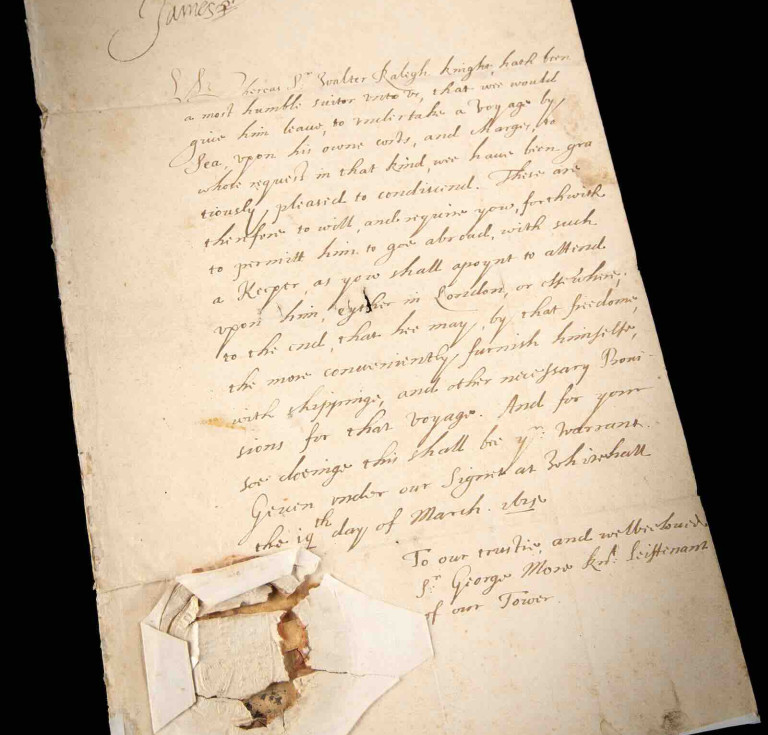 James R
Whereas Sr Walter Ralegh knight, hath been
a most humble suitor vnto vs, that wee would
giue him leaue, to vndertake a Voyage by
Sea, vpon his owne costs, and charges, to
whose request in that kind, wee haue been gra
tiously pleased to condiscend. These are
therefore to will, and require yow, forthwith
to permitt him to goe abroad, with such
a Keeper, as yow shall apoynt to attend
vpon him, eyther in London, or elsewhere,
to the end, that hee may, by that freedome,
the more conveniently furnish himselfe,
with shippinge, and other necessary Proui-
sions for that voyage. And for your
soe doeinge this shall bee yr. warrant.
Geuen vnder our Signet at Whitehall
the 19th day of March. 1615
To our trustie, and welbeeloued
Sr George More Knt. Leiftenant
of our Tower.